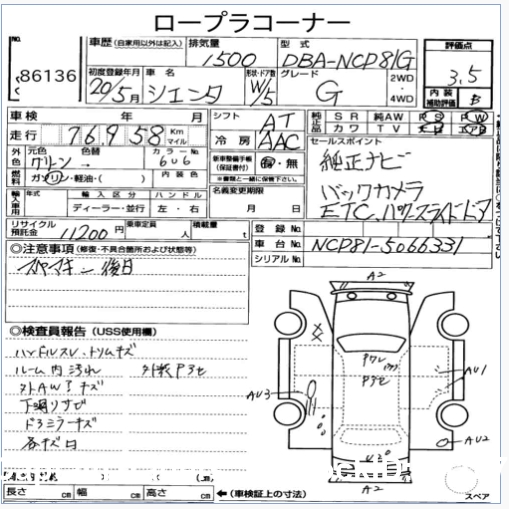 ロープラコーナー
No.
86136
車歴 (自家用以外は記入) 排気量 1500 型式 DBA-NCP81G
評価点 3.5
初度登録年月 20/5月 車名 シエンタ 形状・ドア数 W/5 グレード G 2WD・4WD
内装補助評価 B
車検 年 月 シフト AT
純正品 SR 純AW PS PW
カワ TV エアB
走行 76958 Km マイル 冷房 AAC
セールスポイント
外色 元色 グリーン 色替 カラーNo. 606
純正ナビ
新車整備手帳 (保証書付) 有・無
※書類と一緒に保管下さい。
燃料 ガソリン・軽油・( ) 内装色
バックカメラ
輸入車用 年式 輸入区分 ハンドル 名義変更期限
ディーラー・並行 左・右 月 日
ETC、パワースライドドア
リサイクル預託金 11200円 乗車定員 人 積載量 t
登録No.
車台No. NCP81-5066331
シリアルNo.
◎注意事項 (修復・不具合箇所および状態等)
後日
◎検査員報告 (USS使用欄)
ハンドルスレ、トリムキズ
ルーム内汚れ 外装P3セ
外AWキズ
下廻りサビ
ドアミラーキズ
各キズ凹
A2
AU3
AU1
AU2
A2
長さ cm 幅 cm 高さ cm ←(車検証上の寸法)
スペア